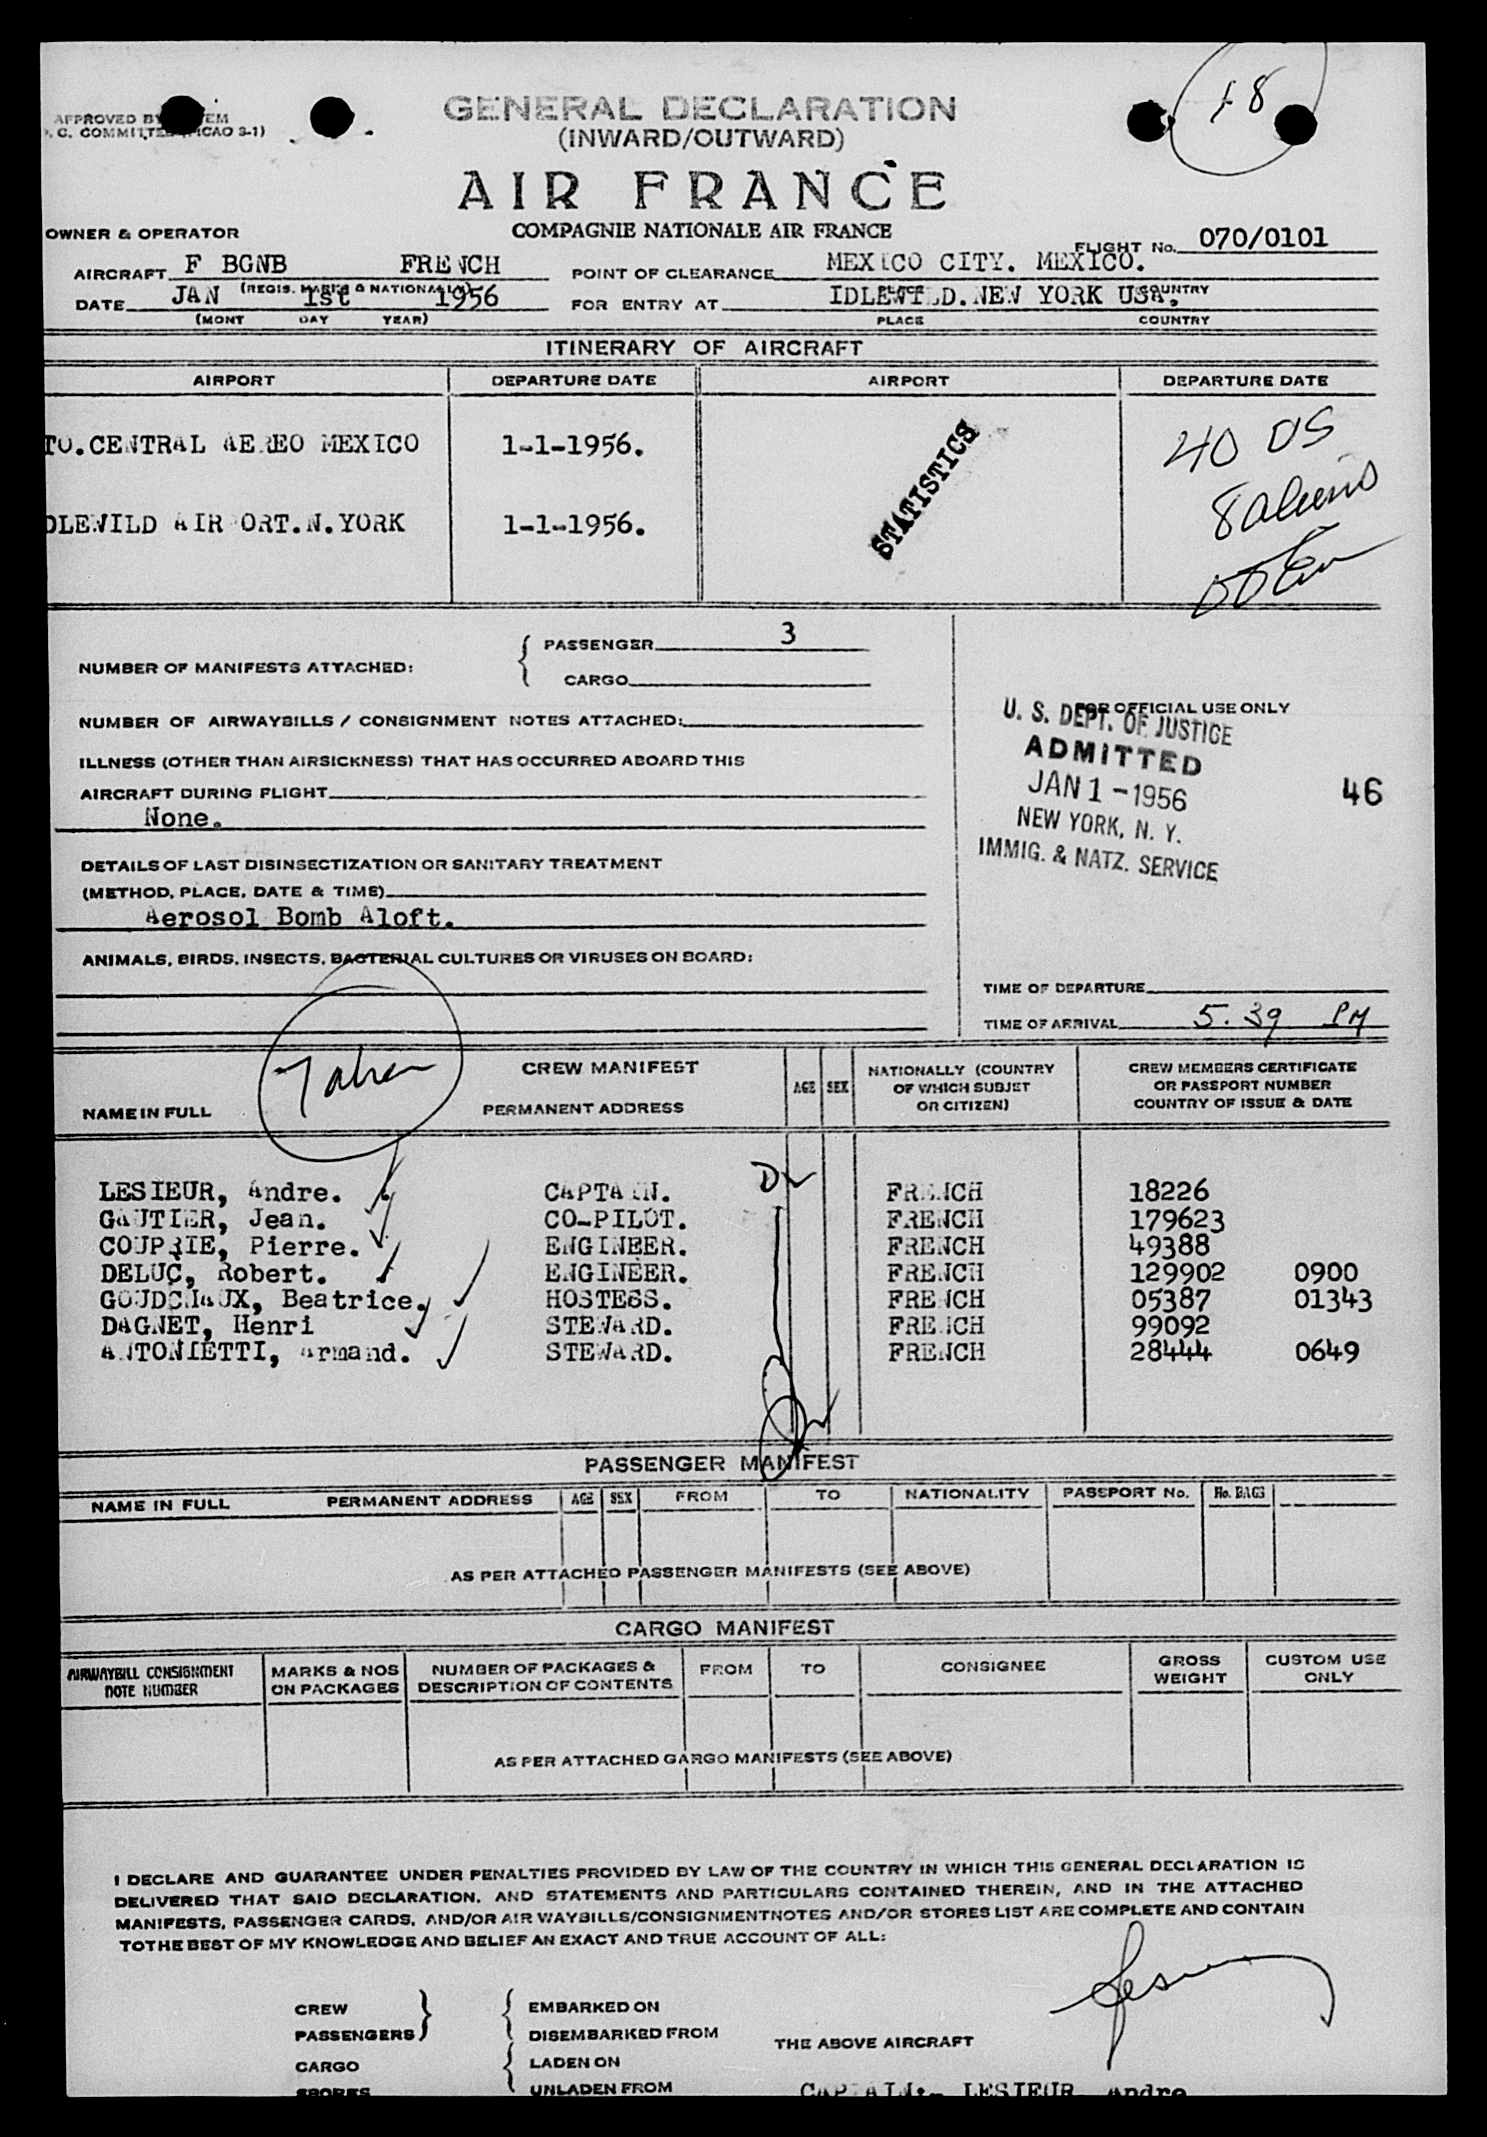 GENERAL DECLARATION
(INWARD/OUTWARD)
AIR FRANCE
COMPAGNIE NATIONALE AIR FRANCE
APPROVED BY
C. COMMITTEE (ICAO S-1)
OWNER & OPERATOR
FLIGHT No. 070/0101
AIRCRAFT F BGNB FRENCH POINT OF CLEARANCE MEXICO CITY. MEXICO.
(REGIS. MARKS & NATIONALITY) PLACE COUNTRY
DATE JAN 1st 1956 FOR ENTRY AT IDLEWILD. NEW YORK USA.
(MONT DAY YEAR) PLACE COUNTRY
ITINERARY OF AIRCRAFT
AIRPORT DEPARTURE DATE AIRPORT DEPARTURE DATE
TO.CENTRAL AEREO MEXICO 1-1-1956.
DLEWILD AIRPORT.N.YORK 1-1-1956.
STATISTICS
40 US
8 aliens
NUMBER OF MANIFESTS ATTACHED: PASSENGER 3
CARGO
NUMBER OF AIRWAYBILLS / CONSIGNMENT NOTES ATTACHED:
ILLNESS (OTHER THAN AIRSICKNESS) THAT HAS OCCURRED ABOARD THIS
AIRCRAFT DURING FLIGHT
None.
DETAILS OF LAST DISINSECTIZATION OR SANITARY TREATMENT
(METHOD, PLACE, DATE & TIME)
Aerosol Bomb Aloft.
ANIMALS, BIRDS, INSECTS, BACTERIAL CULTURES OR VIRUSES ON BOARD:
FOR OFFICIAL USE ONLY
U. S. DEPT. OF JUSTICE
ADMITTED
JAN 1 - 1956
NEW YORK, N. Y.
IMMIG. & NATZ. SERVICE
46
TIME OF DEPARTURE
TIME OF ARRIVAL 5.39 PM
CREW MANIFEST
NAME IN FULL PERMANENT ADDRESS AGE SEX NATIONALLY (COUNTRY OF WHICH SUBJET OR CITIZEN) CREW MEMBERS CERTIFICATE OR PASSPORT NUMBER COUNTRY OF ISSUE & DATE
LESIEUR, Andre. CAPTAIN. FRENCH 18226
GAUTIER, Jean. CO-PILOT. FRENCH 179623
COUPRIE, Pierre. ENGINEER. FRENCH 49388
DELUC, Robert. ENGINEER. FRENCH 129902 0900
GOUDCHAUX, Beatrice, HOSTESS. FRENCH 05387 01343
DAGNET, Henri STEWARD. FRENCH 99092
ANTONIETTI, Armand. STEWARD. FRENCH 28444 0649
PASSENGER MANIFEST
NAME IN FULL PERMANENT ADDRESS AGE SEX FROM TO NATIONALITY PASSPORT No. No. BAGS
AS PER ATTACHED PASSENGER MANIFESTS (SEE ABOVE)
CARGO MANIFEST
AIRWAYBILL CONSIGNMENT NOTE NUMBER MARKS & NOS ON PACKAGES NUMBER OF PACKAGES & DESCRIPTION OF CONTENTS FROM TO CONSIGNEE GROSS WEIGHT CUSTOM USE ONLY
AS PER ATTACHED CARGO MANIFESTS (SEE ABOVE)
I DECLARE AND GUARANTEE UNDER PENALTIES PROVIDED BY LAW OF THE COUNTRY IN WHICH THIS GENERAL DECLARATION IS
DELIVERED THAT SAID DECLARATION, AND STATEMENTS AND PARTICULARS CONTAINED THEREIN, AND IN THE ATTACHED
MANIFESTS, PASSENGER CARDS, AND/OR AIR WAYBILLS/CONSIGNMENTNOTES AND/OR STORES LIST ARE COMPLETE AND CONTAIN
TO THE BEST OF MY KNOWLEDGE AND BELIEF AN EXACT AND TRUE ACCOUNT OF ALL:
CREW EMBARKED ON
PASSENGERS DISEMBARKED FROM
THE ABOVE AIRCRAFT
CARGO LADEN ON
STORES UNLADEN FROM
CAPTAIN:- LESIEUR, Andre